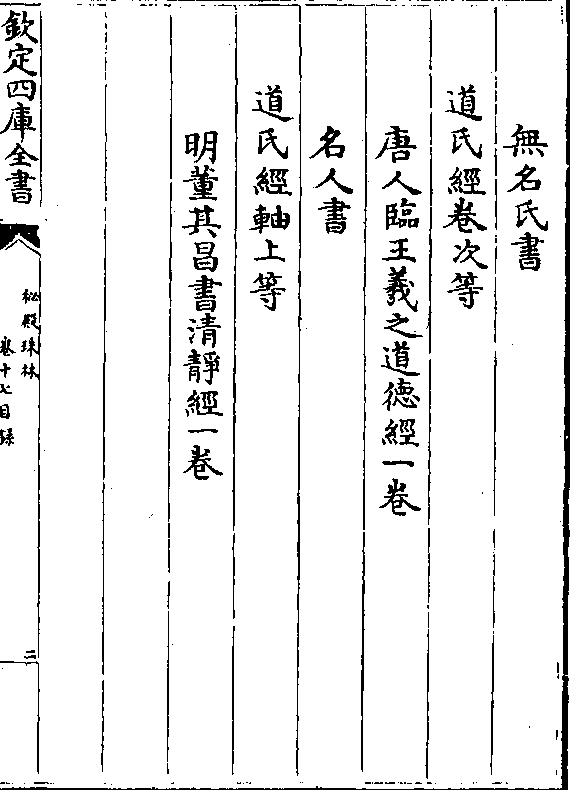 無名氏書
道氏經卷次等
唐人臨王羲之道德經一卷
名人書
道氏經軸上等
明董其昌書清靜經一卷
欽定四庫全書
秘殿珠林
卷十七目錄
二